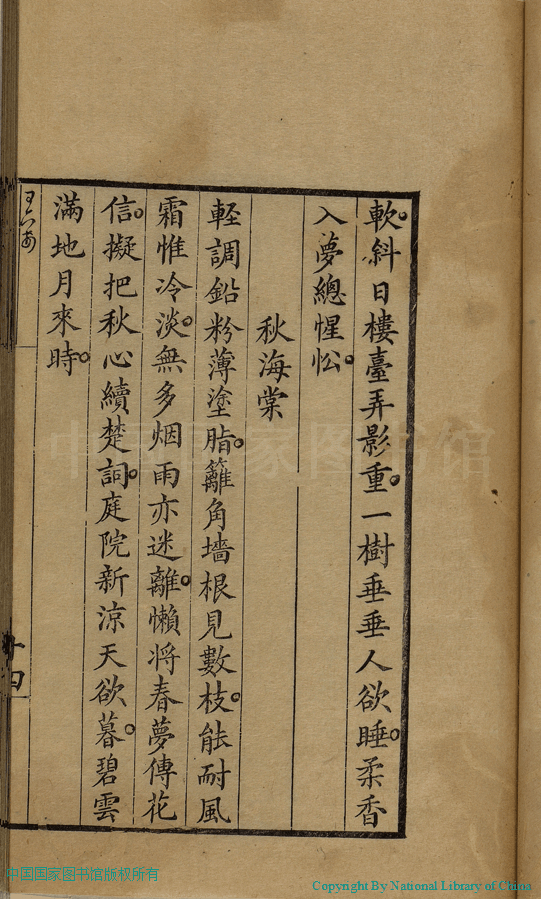 軟。斜日樓臺弄影重。一樹垂垂人欲睡。柔香
入夢總惺忪。
秋海棠
輕調鉛粉薄塗脂。籬角墻根見數枝。能耐風
霜惟冷淡。無多烟雨亦迷離。懶將春夢傳花
信。擬把秋心續楚詞。庭院新涼天欲暮。碧雲
滿地月來時。
中国国家图书馆
中国国家图书馆版权所有
Copyright By National Library of China